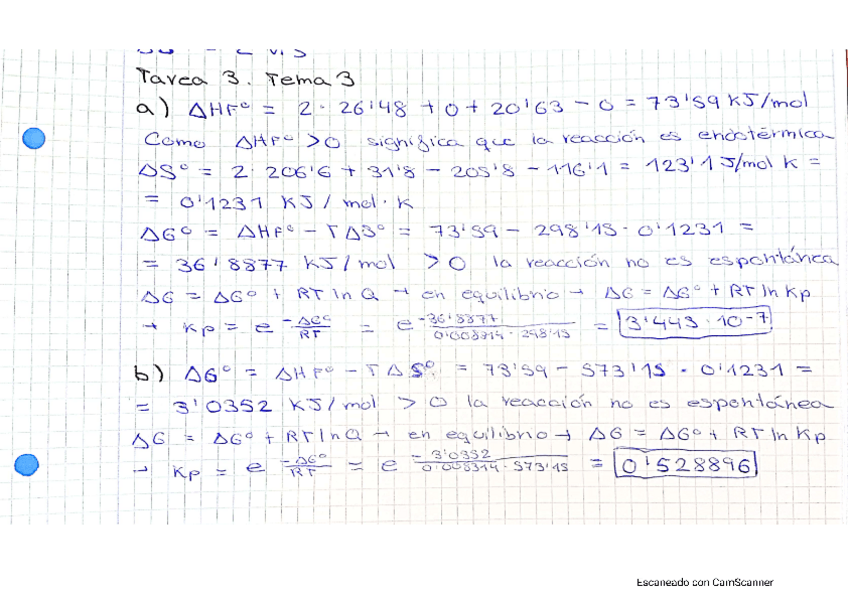 Tarea 3. Tema 3
a) ΔHFº = 2·26'48 + 0 + 20'63 - 0 = 73'59 KJ/mol
Como ΔHFº > 0 significa que la reacción es endotérmica
ΔSº = 2·206'6 + 31'8 - 205'8 - 116'1 = 123'1 J/mol K =
= 0'1231 KJ / mol·K
ΔGº = ΔHFº - TΔSº = 73'59 - 298'15·0'1231 =
= 36'8877 KJ/mol > 0 la reacción no es espontánea
ΔG = ΔGº + RT ln Q → en equilibrio → ΔG = ΔGº + RT ln Kp
→ Kp = e -ΔGº/RT = e -36'8877/0'008314·298'15 = 3'443·10-7
b) ΔGº = ΔHFº - TΔSº = 73'59 - 573'15·0'1231 =
= 3'0352 KJ/mol > 0 la reacción no es espontánea
ΔG = ΔGº + RT ln Q → en equilibrio → ΔG = ΔGº + RT ln Kp
→ Kp = e -ΔGº/RT = e -3'0352/0'008314·573'15 = 0'528896
Escaneado con CamScanner